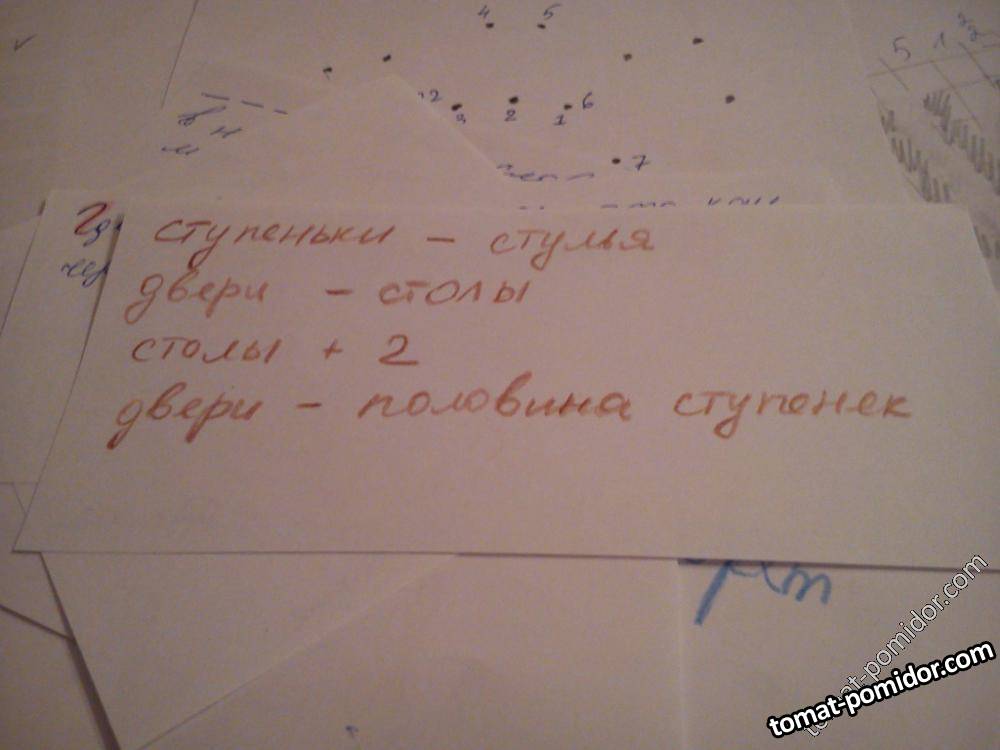 4 5
5 1 22
2 3 2 1 6
в н
м
7
ступеньки – стулья
двери – столы
столы + 2
двери – половина ступенек
tomat-pomidor.com
tomat-pomidor.com